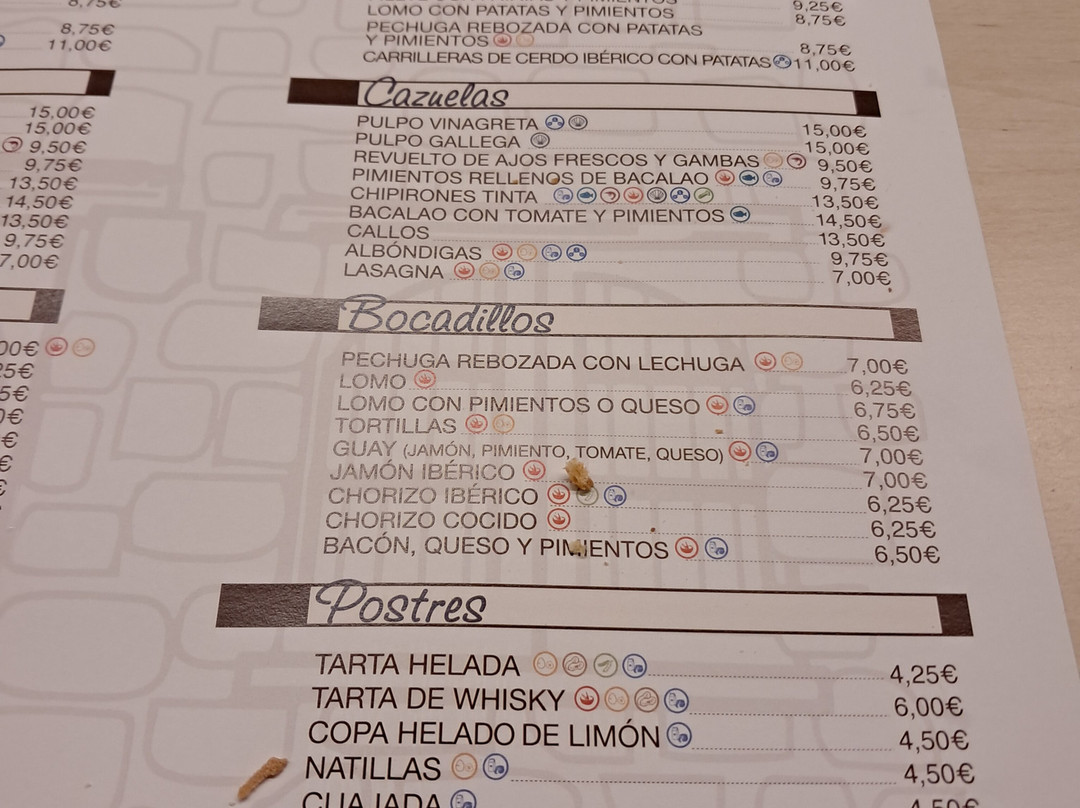 8,75€
8,75€
11,00€
15,00€
15,00€
9,50€
9,75€
13,50€
14,50€
13,50€
9,75€
7,00€
LOMO CON PATATAS Y PIMIENTOS 9,25€
PECHUGA REBOZADA CON PATATAS 8,75€
Y PIMIENTOS 8,75€
CARRILLERAS DE CERDO IBÉRICO CON PATATAS 11,00€
Cazuelas
PULPO VINAGRETA 15,00€
PULPO GALLEGA 15,00€
REVUELTO DE AJOS FRESCOS Y GAMBAS 9,50€
PIMIENTOS RELLENOS DE BACALAO 9,75€
CHIPIRONES TINTA 13,50€
BACALAO CON TOMATE Y PIMIENTOS 14,50€
CALLOS 13,50€
ALBÓNDIGAS 9,75€
LASAGNA 7,00€
Bocadillos
PECHUGA REBOZADA CON LECHUGA 7,00€
LOMO 6,25€
LOMO CON PIMIENTOS O QUESO 6,75€
TORTILLAS 6,50€
GUAY (JAMÓN, PIMIENTO, TOMATE, QUESO) 7,00€
JAMÓN IBÉRICO 7,00€
CHORIZO IBÉRICO 6,25€
CHORIZO COCIDO 6,25€
BACÓN, QUESO Y PIMIENTOS 6,50€
Postres
TARTA HELADA 4,25€
TARTA DE WHISKY 6,00€
COPA HELADO DE LIMÓN 4,50€
NATILLAS 4,50€
CUAJADA 4,50€